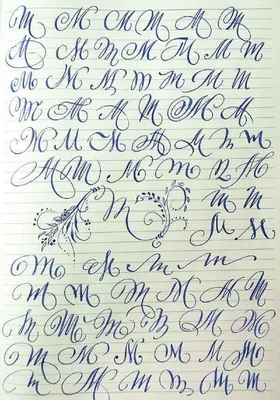 M M M M M M
M M M M M M M
M M M M M M M M
M M M M M M M
M M M M M M M
M M M M M M
M M M
M M
M M M M
M M M M M M
M M M M M M
M M M M M M
M M M M M M